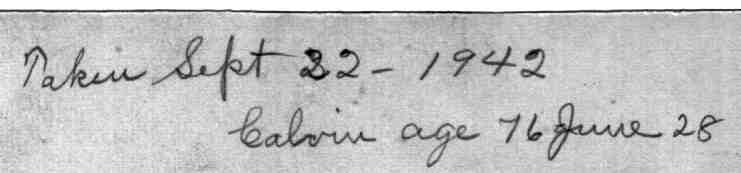 Taken Sept 22 - 1942
Calvin age 76 June 28